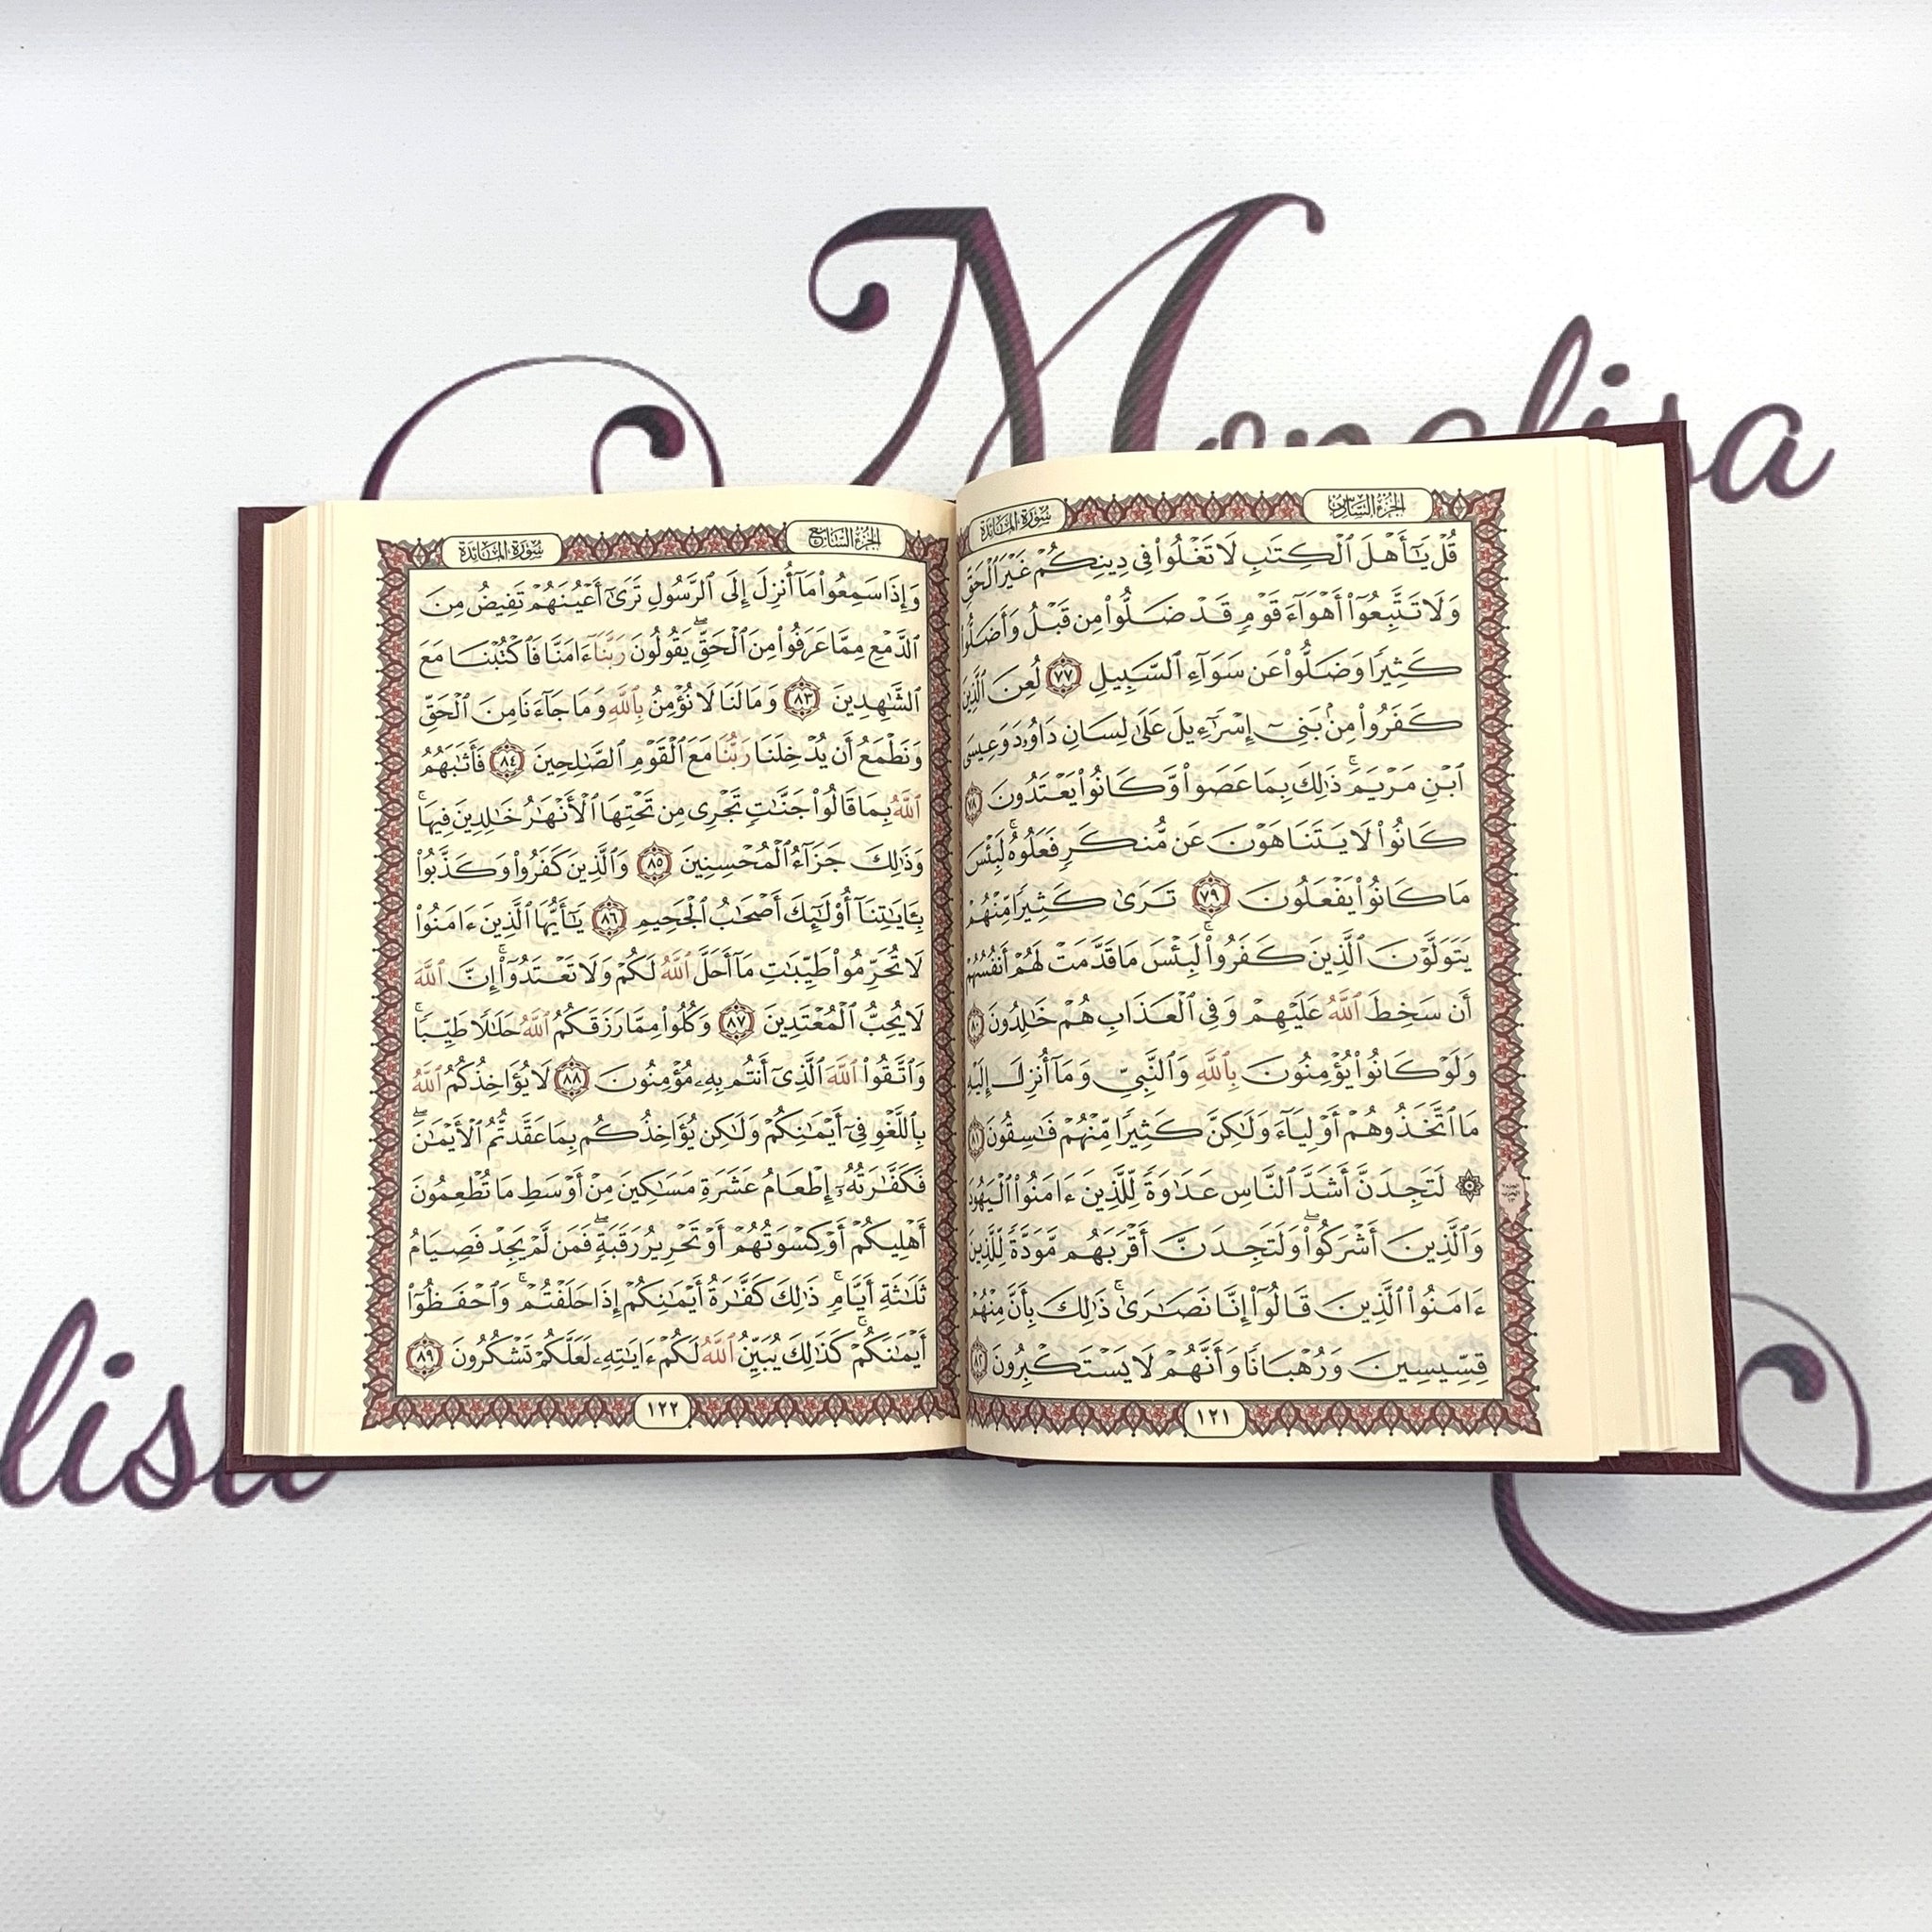 Monalisa
الجزء السادس
سورة المائدة
قُلْ يَٰٓأَهْلَ ٱلْكِتَٰبِ لَا تَغْلُوا۟ فِى دِينِكُمْ غَيْرَ ٱلْحَقِّ
وَلَا تَتَّبِعُوٓا۟ أَهْوَآءَ قَوْمٍ قَدْ ضَلُّوا۟ مِن قَبْلُ وَأَضَلُّوا۟
كَثِيرًا وَضَلُّوا۟ عَن سَوَآءِ ٱلسَّبِيلِ ٧٧ لُعِنَ ٱلَّذِينَ
كَفَرُوا۟ مِنۢ بَنِىٓ إِسْرَٰٓءِيلَ عَلَىٰ لِسَانِ دَاوُۥدَ وَعِيسَى
ٱبْنِ مَرْيَمَ ۚ ذَٰلِكَ بِمَا عَصَوا۟ وَّكَانُوا۟ يَعْتَدُونَ ٧٨
كَانُوا۟ لَا يَتَنَاهَوْنَ عَن مُّنكَرٍ فَعَلُوهُ ۚ لَبِئْسَ
مَا كَانُوا۟ يَفْعَلُونَ ٧٩ تَرَىٰ كَثِيرًا مِّنْهُمْ
يَتَوَلَّوْنَ ٱلَّذِينَ كَفَرُوا۟ ۚ لَبِئْسَ مَا قَدَّمَتْ لَهُمْ أَنفُسُهُمْ
أَن سَخِطَ ٱللَّهُ عَلَيْهِمْ وَفِى ٱلْعَذَابِ هُمْ خَٰلِدُونَ ٨٠
وَلَوْ كَانُوا۟ يُؤْمِنُونَ بِٱللَّهِ وَٱلنَّبِىِّ وَمَآ أُنزِلَ إِلَيْهِ
مَا ٱتَّخَذُوهُمْ أَوْلِيَآءَ وَلَٰكِنَّ كَثِيرًا مِّنْهُمْ فَٰسِقُونَ ٨١
۞ لَتَجِدَنَّ أَشَدَّ ٱلنَّاسِ عَدَٰوَةً لِّلَّذِينَ ءَامَنُوا۟ ٱلْيَهُودَ
وَٱلَّذِينَ أَشْرَكُوا۟ ۖ وَلَتَجِدَنَّ أَقْرَبَهُم مَّوَدَّةً لِّلَّذِينَ
ءَامَنُوا۟ ٱلَّذِينَ قَالُوٓا۟ إِنَّا نَصَٰرَىٰ ۚ ذَٰلِكَ بِأَنَّ مِنْهُمْ
قِسِّيسِينَ وَرُهْبَانًا وَأَنَّهُمْ لَا يَسْتَكْبِرُونَ ٨٢
١٢١
الجزء السابع
سورة المائدة
وَإِذَا سَمِعُوا۟ مَآ أُنزِلَ إِلَى ٱلرَّسُولِ تَرَىٰٓ أَعْيُنَهُمْ تَفِيضُ مِنَ
ٱلدَّمْعِ مِمَّا عَرَفُوا۟ مِنَ ٱلْحَقِّ ۖ يَقُولُونَ رَبَّنَآ ءَامَنَّا فَٱكْتُبْنَا مَعَ
ٱلشَّٰهِدِينَ ٨٣ وَمَا لَنَا لَا نُؤْمِنُ بِٱللَّهِ وَمَا جَآءَنَا مِنَ ٱلْحَقِّ
وَنَطْمَعُ أَن يُدْخِلَنَا رَبُّنَا مَعَ ٱلْقَوْمِ ٱلصَّٰلِحِينَ ٨٤ فَأَثَٰبَهُمُ
ٱللَّهُ بِمَا قَالُوا۟ جَنَّٰتٍ تَجْرِى مِن تَحْتِهَا ٱلْأَنْهَٰرُ خَٰلِدِينَ فِيهَا ۚ
وَذَٰلِكَ جَزَآءُ ٱلْمُحْسِنِينَ ٨٥ وَٱلَّذِينَ كَفَرُوا۟ وَكَذَّبُوا۟
بِـَٔايَٰتِنَآ أُو۟لَٰٓئِكَ أَصْحَٰبُ ٱلْجَحِيمِ ٨٦ يَٰٓأَيُّهَا ٱلَّذِينَ ءَامَنُوا۟
لَا تُحَرِّمُوا۟ طَيِّبَٰتِ مَآ أَحَلَّ ٱللَّهُ لَكُمْ وَلَا تَعْتَدُوٓا۟ ۚ إِنَّ ٱللَّهَ
لَا يُحِبُّ ٱلْمُعْتَدِينَ ٨٧ وَكُلُوا۟ مِمَّا رَزَقَكُمُ ٱللَّهُ حَلَٰلًا طَيِّبًا ۚ
وَٱتَّقُوا۟ ٱللَّهَ ٱلَّذِىٓ أَنتُم بِهِۦ مُؤْمِنُونَ ٨٨ لَا يُؤَاخِذُكُمُ ٱللَّهُ
بِٱللَّغْوِ فِىٓ أَيْمَٰنِكُمْ وَلَٰكِن يُؤَاخِذُكُم بِمَا عَقَّدتُّمُ ٱلْأَيْمَٰنَ ۖ
فَكَفَّٰرَتُهُۥٓ إِطْعَامُ عَشَرَةِ مَسَٰكِينَ مِنْ أَوْسَطِ مَا تُطْعِمُونَ
أَهْلِيكُمْ أَوْ كِسْوَتُهُمْ أَوْ تَحْرِيرُ رَقَبَةٍ ۖ فَمَن لَّمْ يَجِدْ فَصِيَامُ
ثَلَٰثَةِ أَيَّامٍ ۚ ذَٰلِكَ كَفَّٰرَةُ أَيْمَٰنِكُمْ إِذَا حَلَفْتُمْ ۚ وَٱحْفَظُوٓا۟
أَيْمَٰنَكُمْ ۚ كَذَٰلِكَ يُبَيِّنُ ٱللَّهُ لَكُمْ ءَايَٰتِهِۦ لَعَلَّكُمْ تَشْكُرُونَ ٨٩
١٢٢
lisa